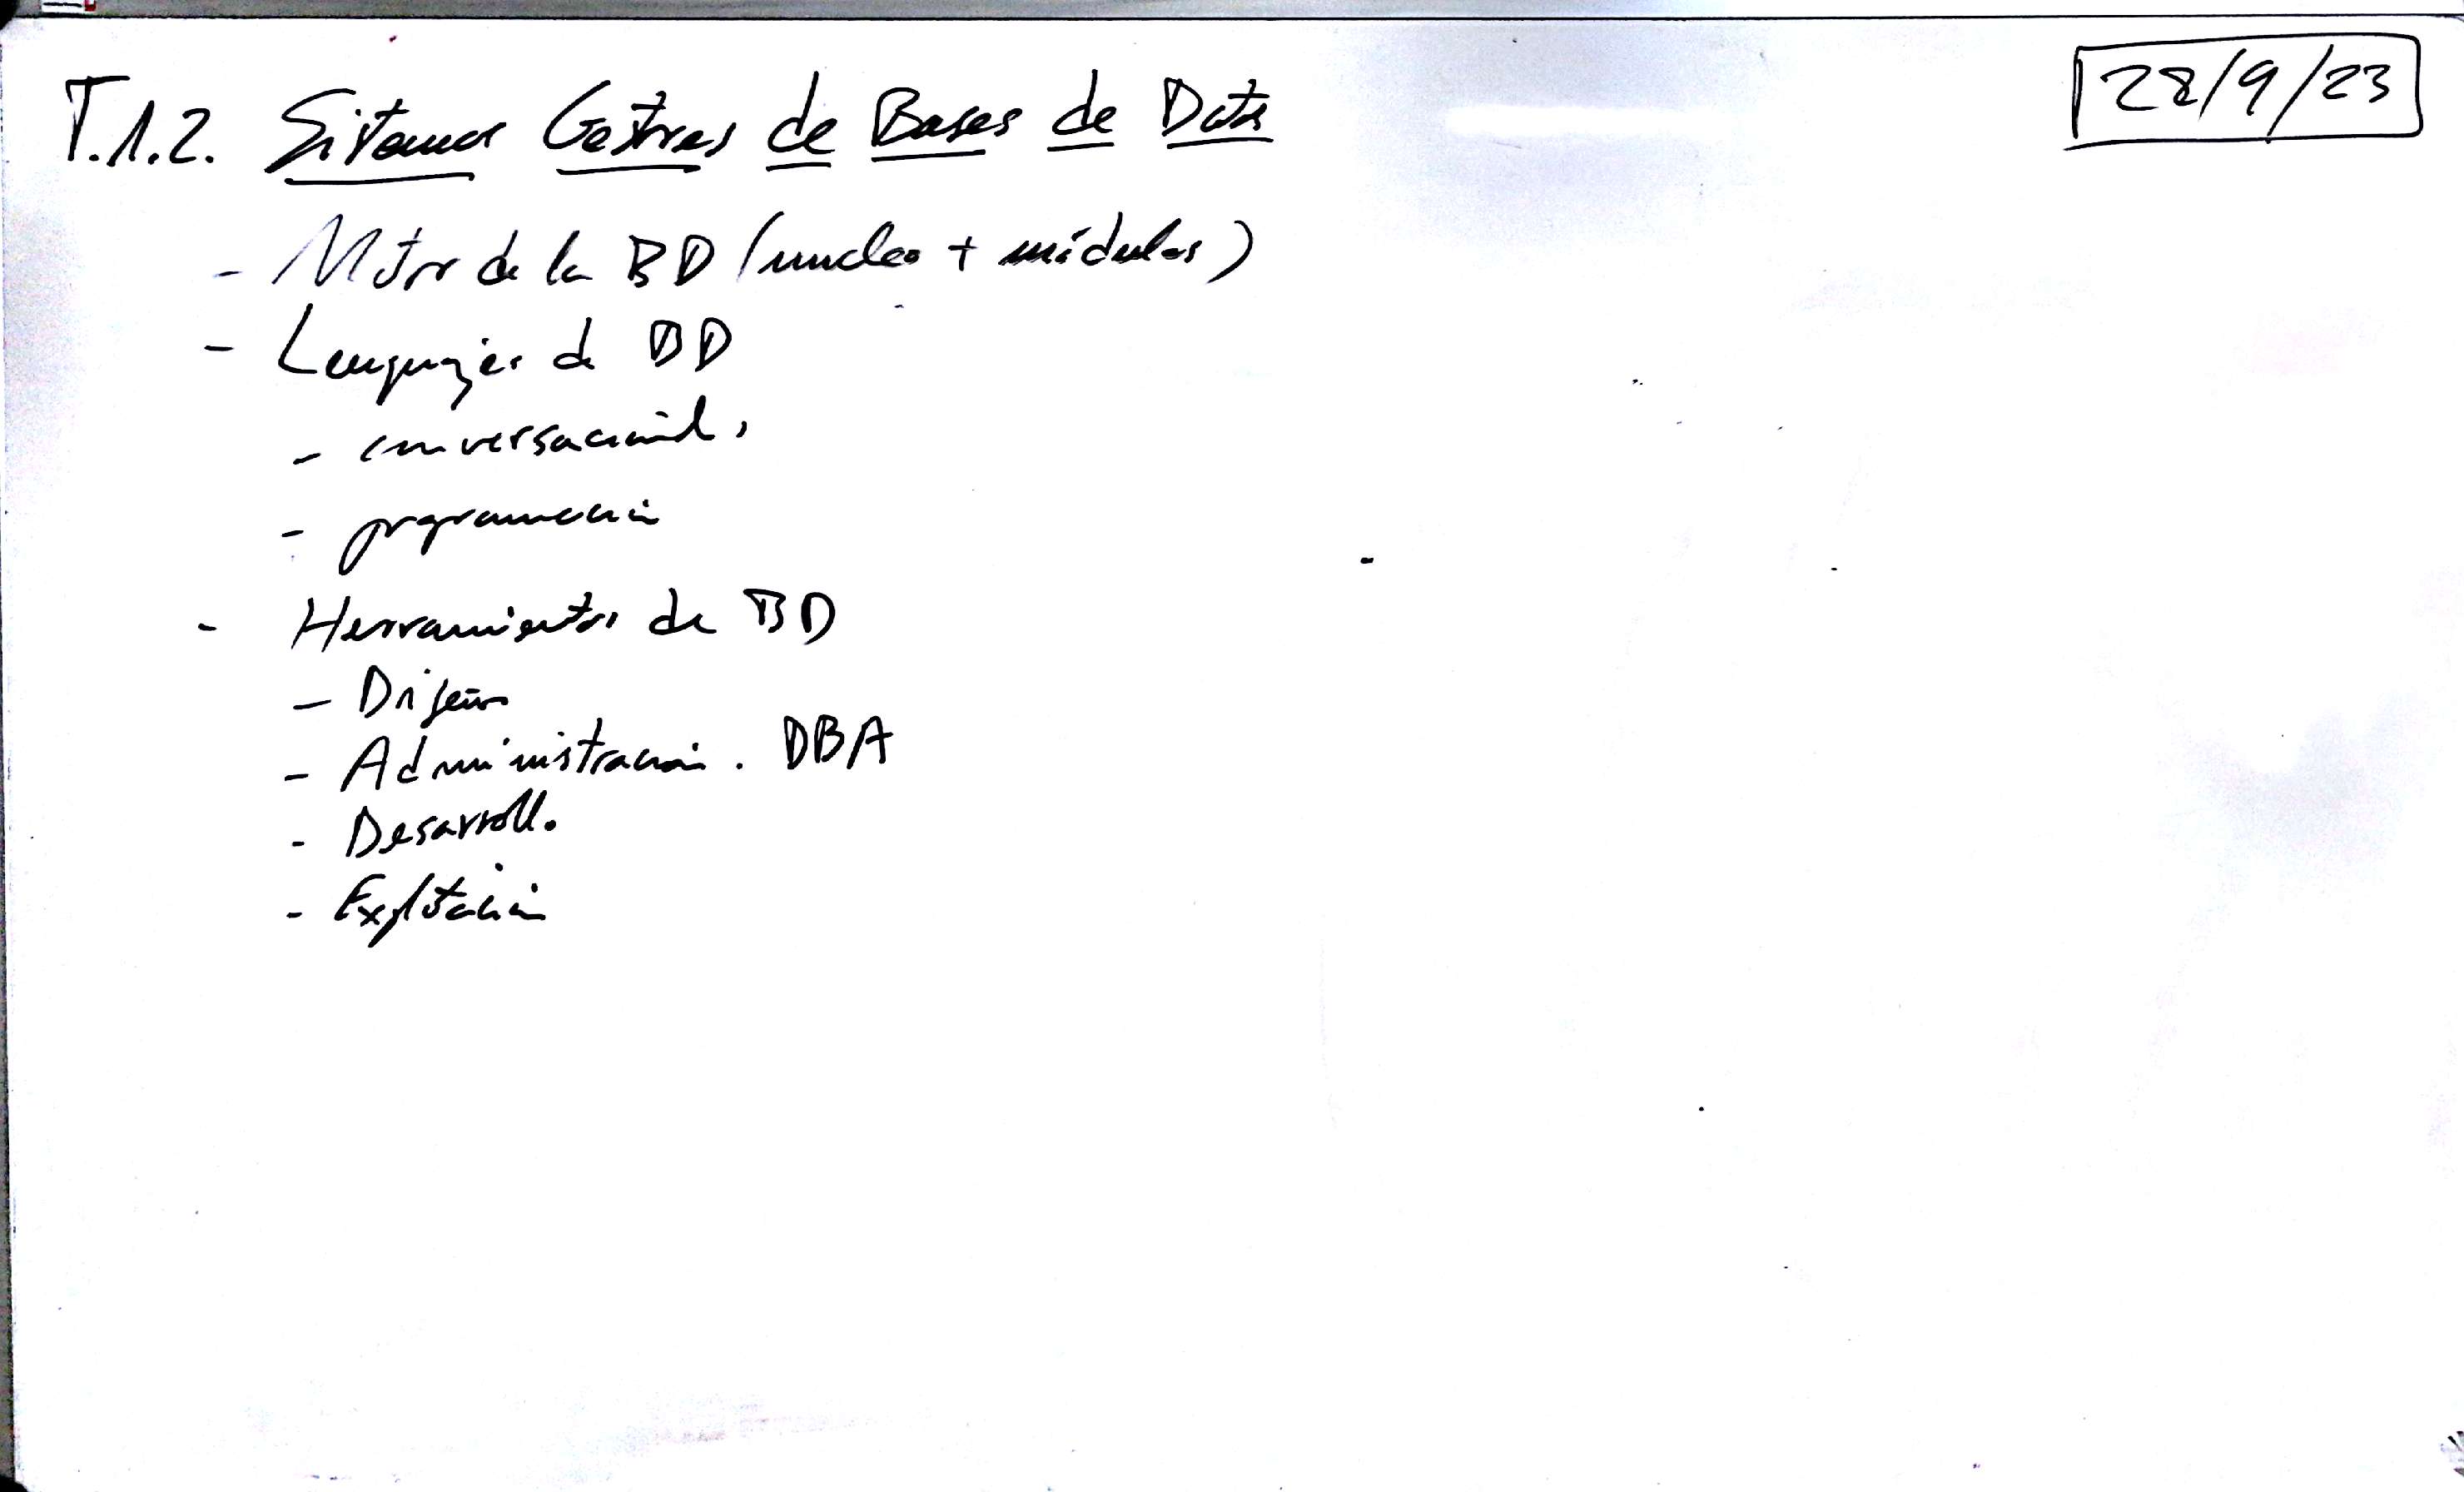 T.1.2. Sistemas Gestores de Bases de Datos
28/9/23
- Motor de la BD (nucleo + módulos)
- Lenguajes de BD
- conversacional,
- programación
- Herramientas de BD
- Diseño
- Administración. DBA
- Desarrollo
- Explotación